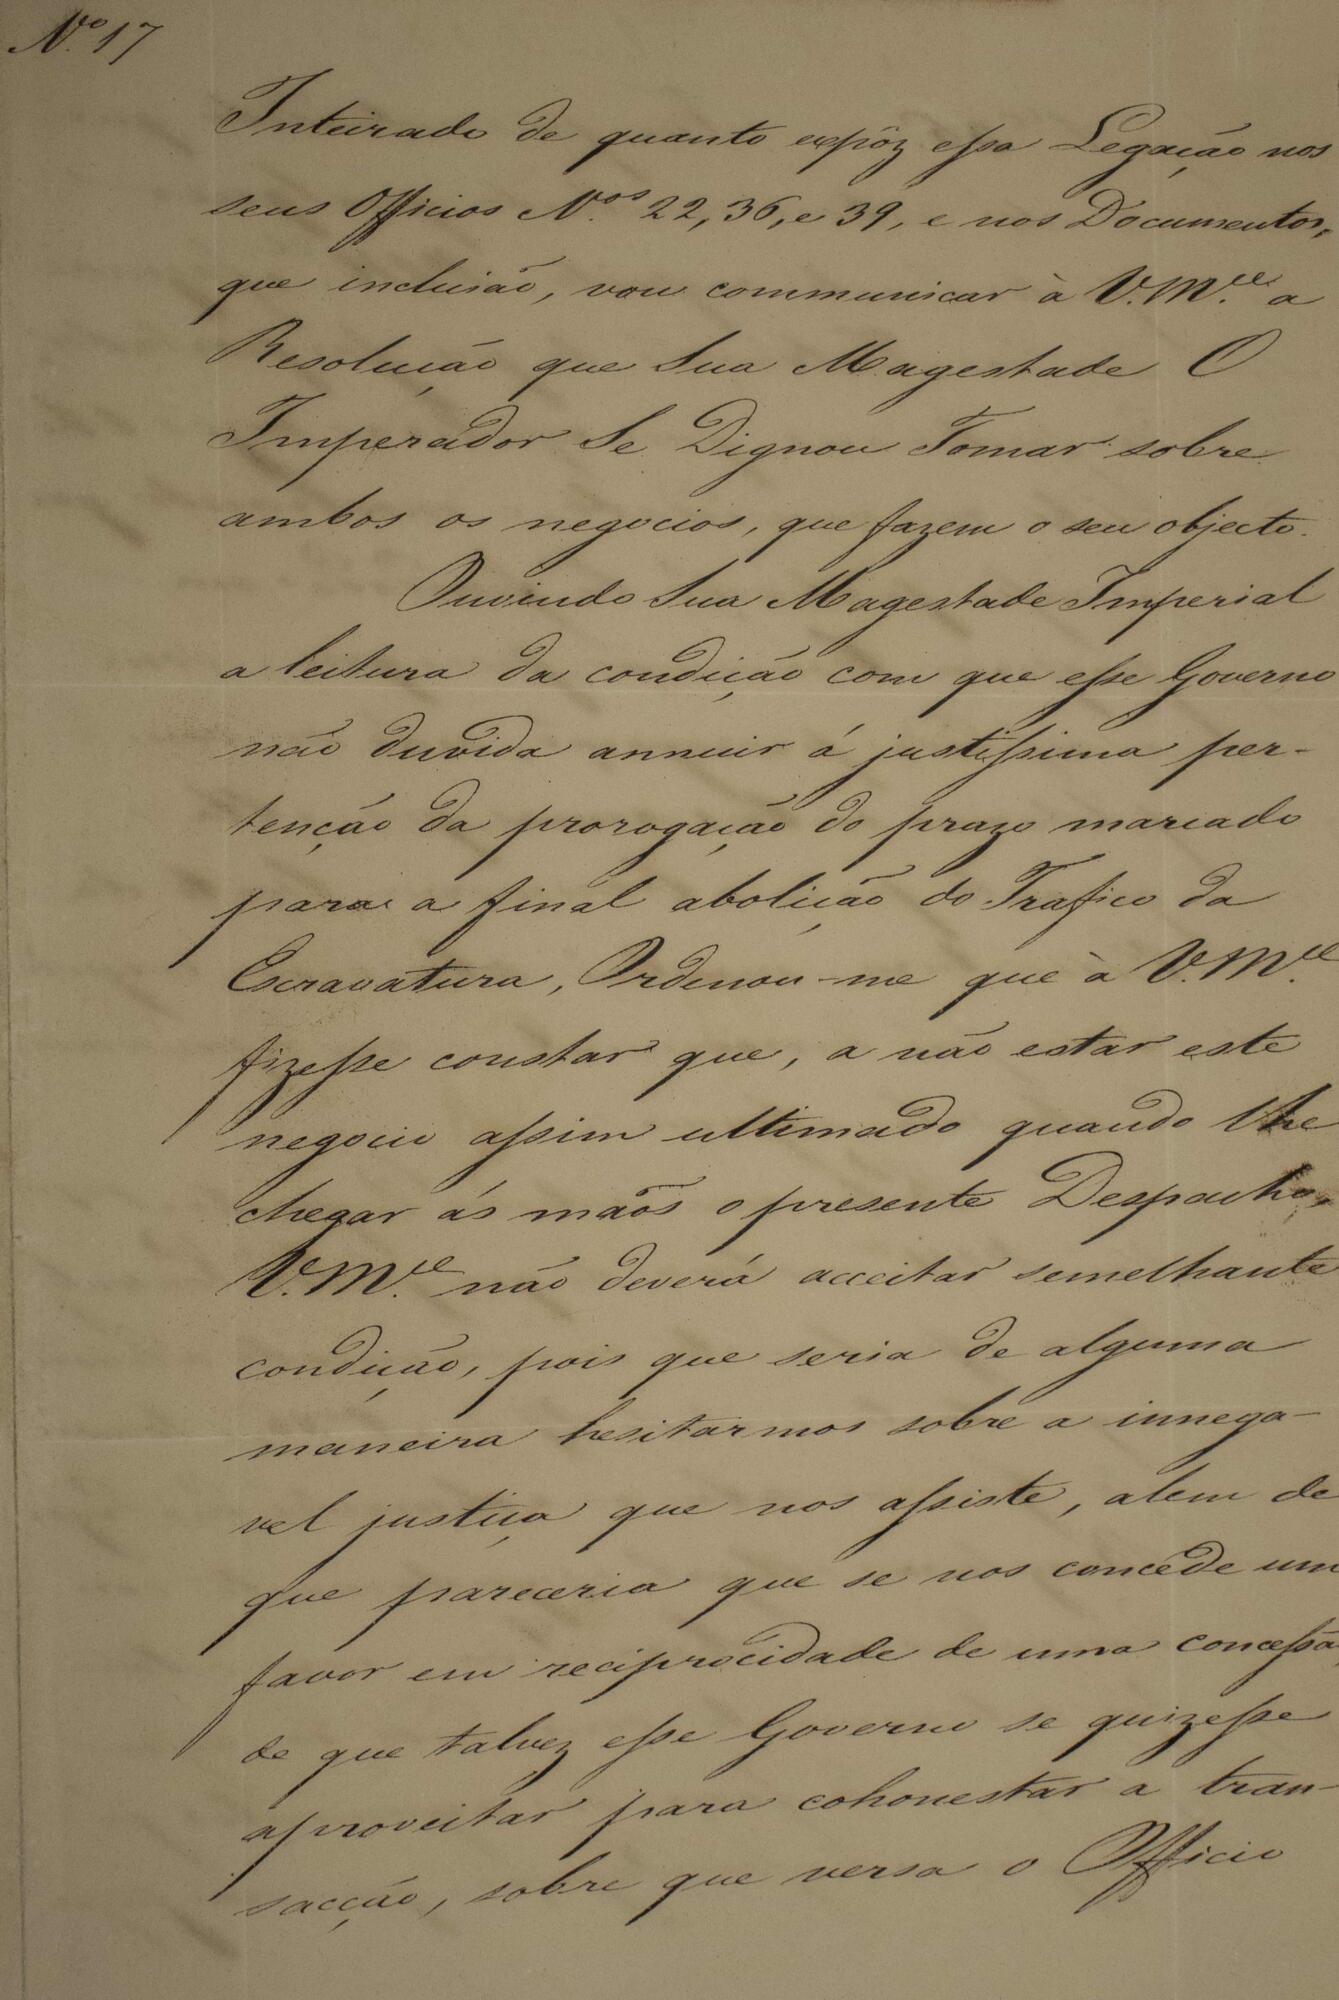 Nº 17
Inteirado de quanto expôz essa Legação nos
seus Officios N.os 22, 36, e 39, e nos Documentos,
que incluião, vou communicar à V.M.ce a
Resolução que Sua Magestade O
Imperador Se Dignou Tomar sobre
ambos os negocios, que fazem o seu objecto.
Ouvindo Sua Magestade Imperial
a leitura da condição com que esse Governo
não duvida annuir á justissima per-
tenção da prorogação do prazo marcado
para a final abolição do Trafico da
Escravatura, Ordenou-me que à V.M.ce
fizesse constar que, a não estar este
negocio assim ultimado quando lhe
chegar ás mãos o presente Despacho,
V.M.ce não deverá acceitar semelhante
condição, pois que seria de alguma
maneira hesitarmos sobre a innega-
vel justiça que nos assiste, alem de
que pareceria que se nos concede um
favor em reciprocidade de uma concessão
de que talvez esse Governo se quizesse
aproveitar para cohonestar a tran-
sacção, sobre que versa o Officio